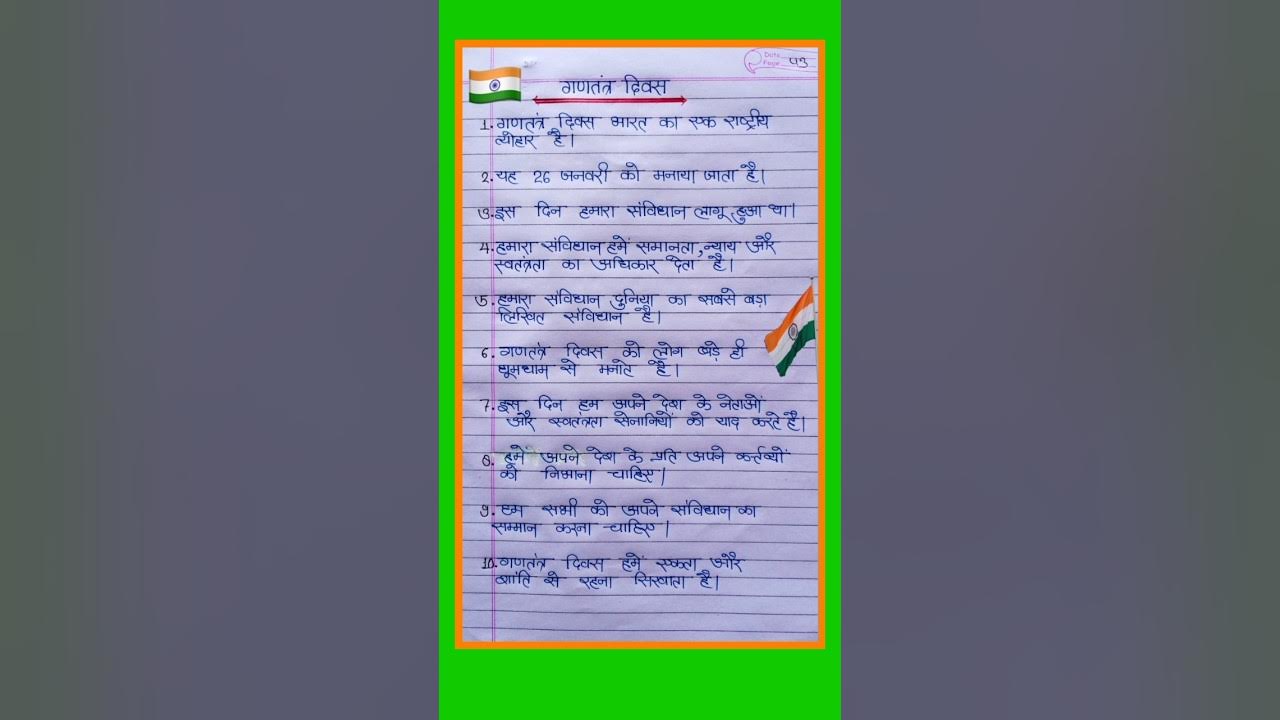 Date
Page 43
गणतंत्र दिवस
1. गणतंत्र दिवस भारत का एक राष्ट्रीय
त्योहार है।
2. यह 26 जनवरी को मनाया जाता है।
3. इस दिन हमारा संविधान लागू हुआ था।
4. हमारा संविधान हमें समानता, न्याय और
स्वतंत्रता का अधिकार देता है।
5. हमारा संविधान दुनिया का सबसे बड़ा
लिखित संविधान है।
6. गणतंत्र दिवस को लोग बड़े ही
धूमधाम से मनाते है।
7. इस दिन हम अपने देश के नेताओं
और स्वतंत्रता सेनानियों को याद करते है।
8. हमें अपने देश के प्रति अपने कर्त्तव्यों
को निभाना चाहिए।
9. हम सभी को अपने संविधान का
सम्मान करना चाहिए।
10. गणतंत्र दिवस हमें एकता और
शांति से रहना सिखाता है।